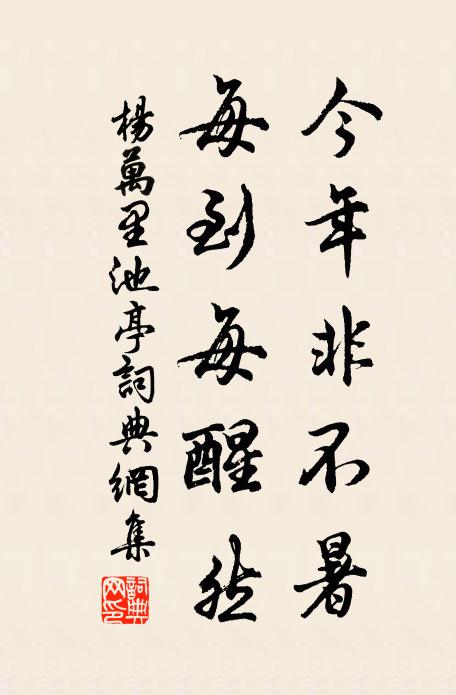 今年非不暑
每到每醒然
楊萬里池亭詞典網集
詞典网印